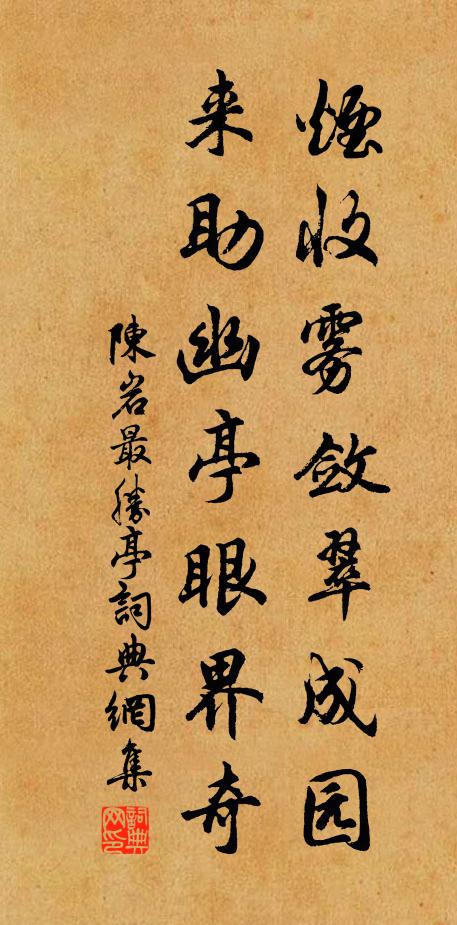 煙收雾斂翠成园
来助幽亭眼界奇
陳岩最勝亭詞典網集
詞典网印